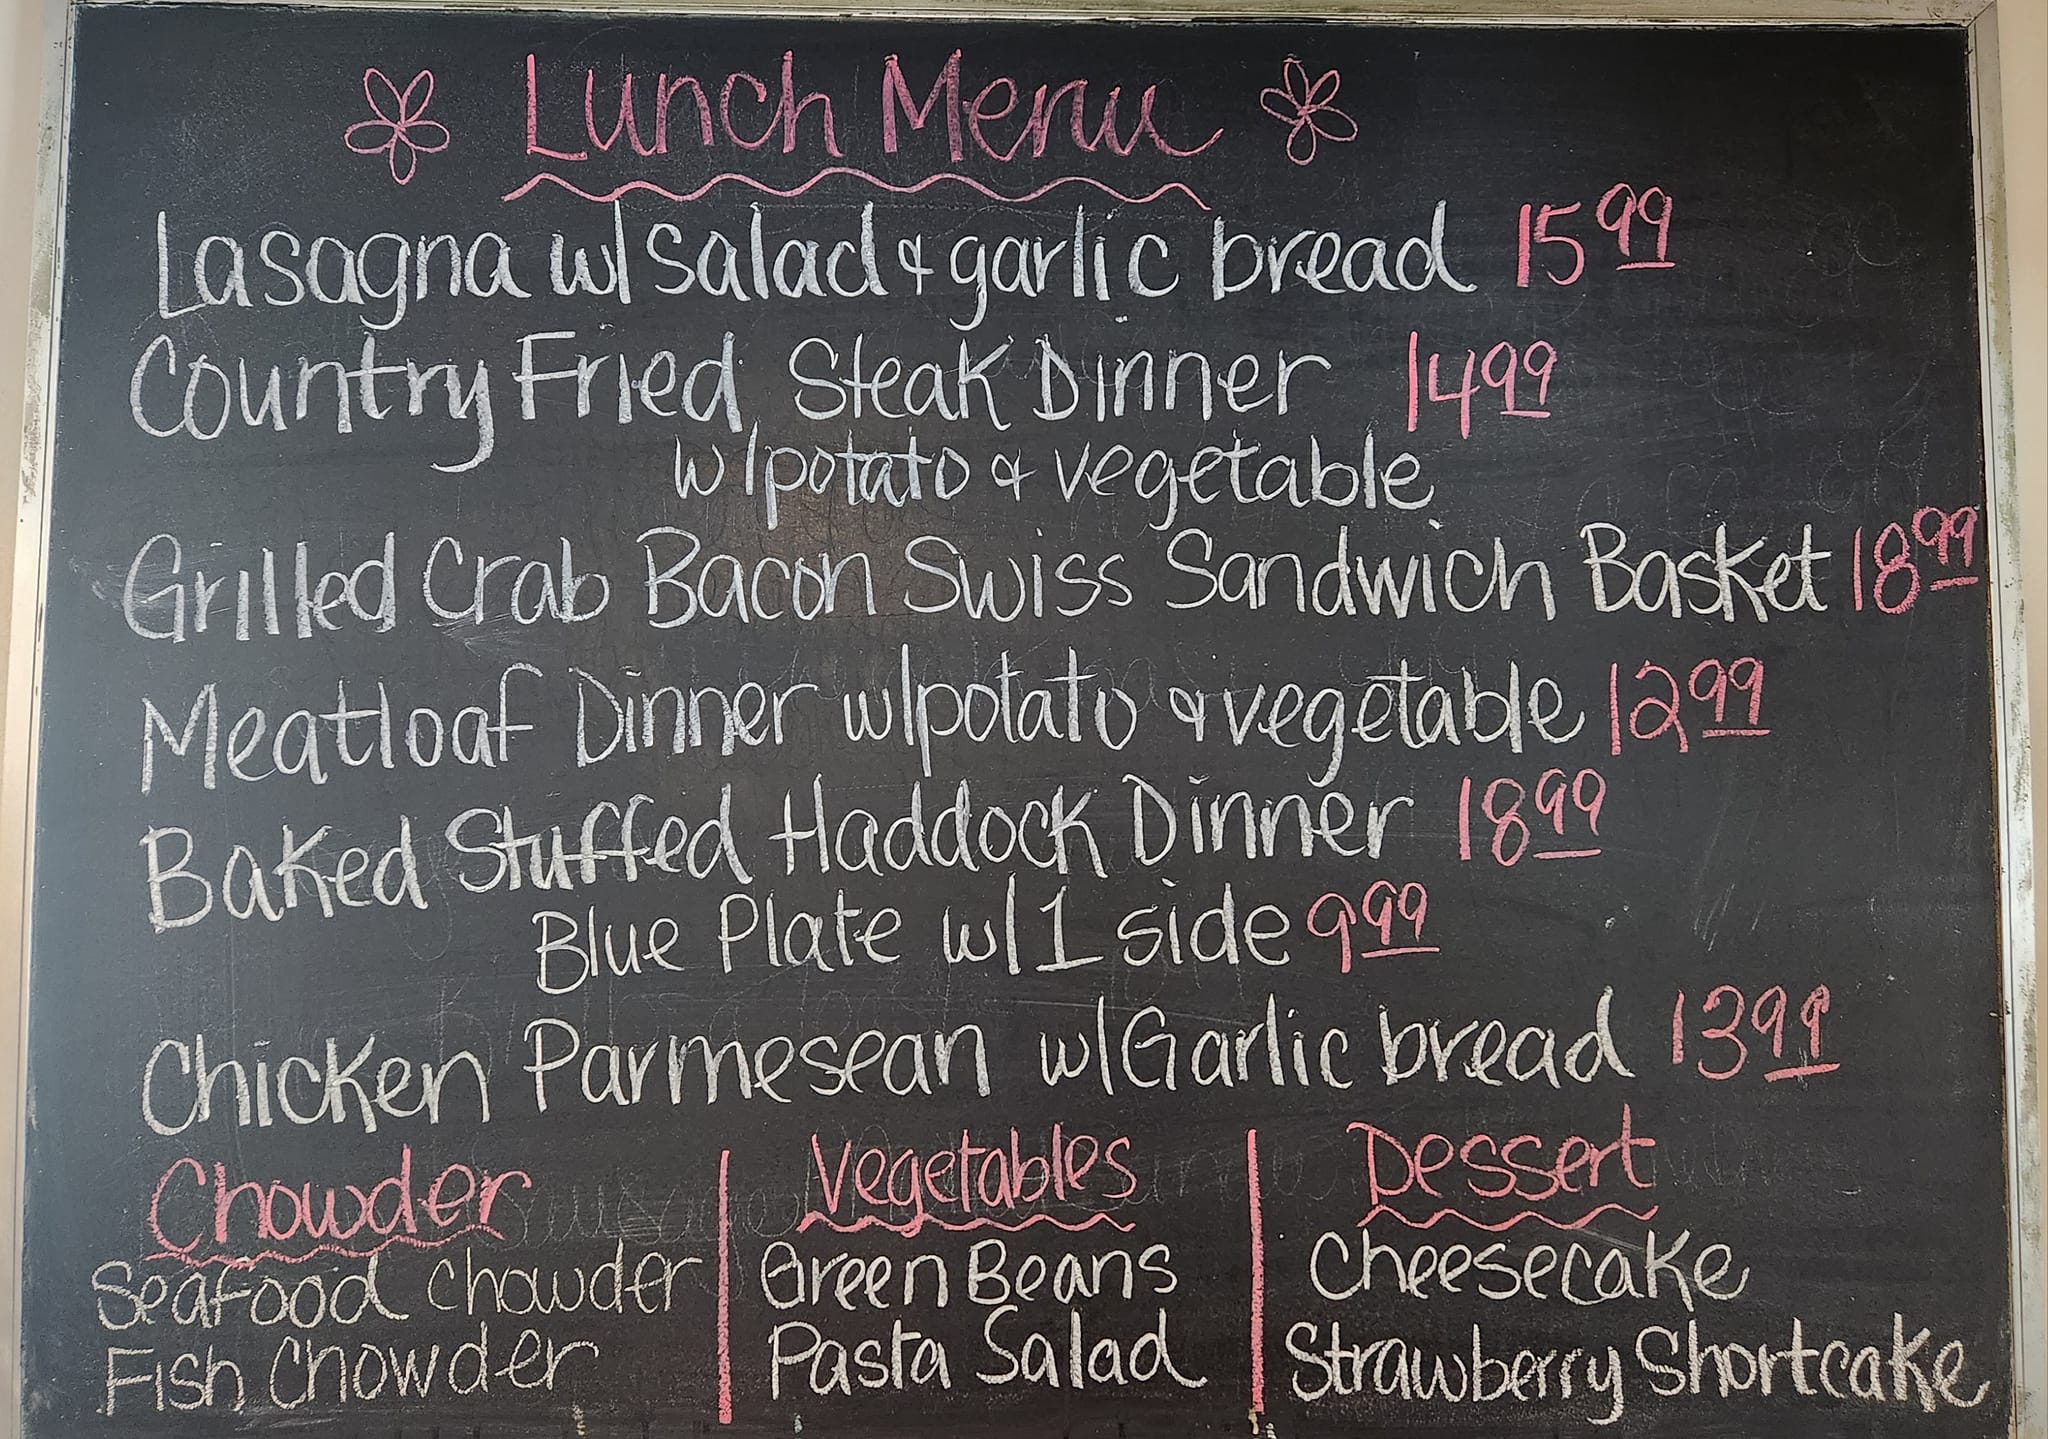 Lunch Menu
Lasagna w/salad & garlic bread 15.99
Country Fried Steak Dinner 14.99
w/potato & vegetable
Grilled Crab Bacon Swiss Sandwich Basket 18.99
Meatloaf Dinner w/potato & vegetable 12.99
Baked Stuffed Haddock Dinner 18.99
Blue Plate w/1 side 9.99
Chicken Parmesean w/Garlic bread 13.99
Chowder
Seafood Chowder
Fish Chowder
Vegetables
Green Beans
Pasta Salad
Dessert
Cheesecake
Strawberry Shortcake